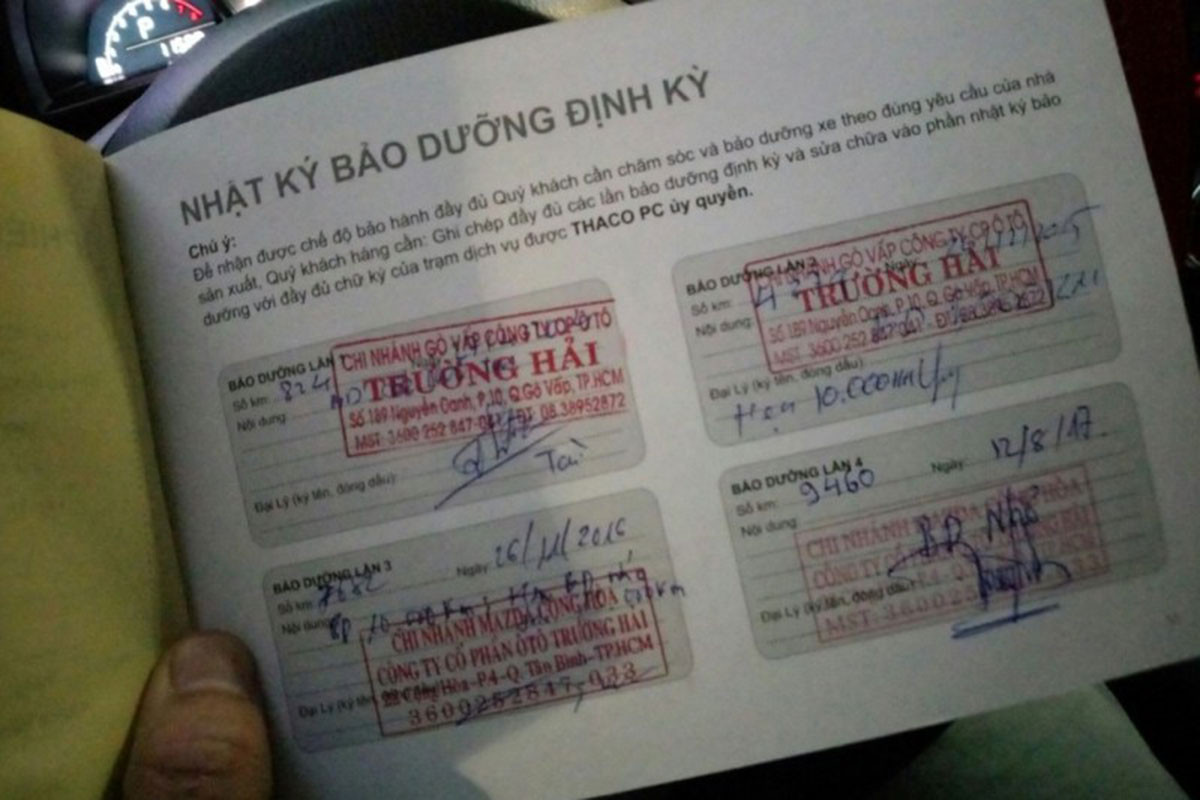 P
NHẬT KÝ BẢO DƯỠNG ĐỊNH KỲ
Chú ý:
Để nhận được chế độ bảo hành đầy đủ Quý khách cần chăm sóc và bảo dưỡng xe theo đúng yêu cầu của nhà
sản xuất, Quý khách hàng cần: Ghi chép đầy đủ các lần bảo dưỡng định kỳ và sửa chữa vào phần nhật ký bảo
dưỡng với đầy đủ chữ ký của trạm dịch vụ được THACO PC ủy quyền.
BẢO DƯỠNG LẦN 1
Số km: 824
Nội dung:
CHI NHÁNH GÒ VẤP CÔNG TY CP Ô TÔ
TRƯỜNG HẢI
Số 189 Nguyễn Oanh, P.10, Q.Gò Vấp, TP.HCM
MST: 3600 252 847-041 - ĐT: 08.38952872
Đại Lý (ký tên, đóng dấu):
Tài
BẢO DƯỠNG LẦN 2
Ngày:
Số km:
Nội dung:
CHI NHÁNH GÒ VẤP CÔNG TY CP Ô TÔ
TRƯỜNG HẢI
Số 189 Nguyễn Oanh, P.10, Q.Gò Vấp, TP.HCM
MST: 3600 252 847-041 - ĐT:
Đại Lý (ký tên, đóng dấu)
Hẹn 10.000km
BẢO DƯỠNG LẦN 3
Ngày: 26/11/2016
Số km:
Nội dung:
CHI NHÁNH MAZDA CỘNG HÒA
CÔNG TY CỔ PHẦN ÔTÔ TRƯỜNG HẢI
Cộng Hòa-P.4-Q. Tân Bình-TP.HCM
3600252847-033
Đại Lý (ký tên
BẢO DƯỠNG LẦN 4
Ngày: 12/8/17
Số km: 9460
Nội dung
BD Nhỏ
CHI NHÁNH MAZDA CỘNG HÒA
Đại Lý (ký tên, đóng dấu)